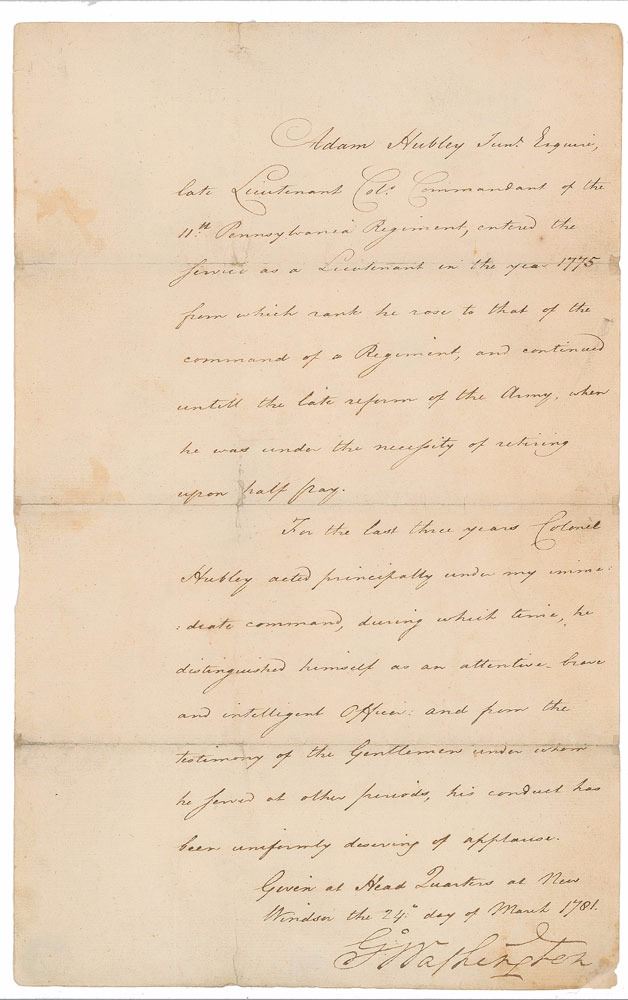 Adam Hubley Junr. Esquire,
late Lieutenant Colo. Commandant of the
11th. Pennsylvania Regiment, entered the
service as a Lieutenant in the year 1775
from which rank he rose to that of the
command of a Regiment, and continued
untill the late reform of the Army, when
he was under the necessity of retiring
upon half pay.
For the last three years Colonel
Hubley acted principally under my imme:
:diate command, during which time, he
distinguished himself as an attentive, brave
and intelligent Officer: and from the
testimony of the Gentlemen under whom
he served at other periods, his conduct has
been uniformly deserving of applause.
Given at Head Quarters at New
Windsor the 24th day of March 1781.
Go: Washington